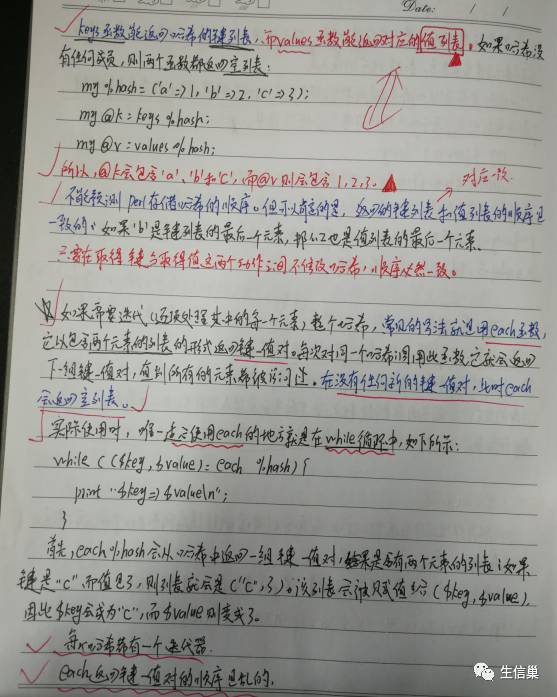 Date: / /
keys函数能返回哈希的键列表,而values函数能返回对应的值列表。如果哈希没
有任何成员,则两个函数都返回空列表:
my %hash=('a'=>1,'b'=>2,'c'=>3);
my @k=keys %hash;
my @v=values %hash;
所以,@k会包含'a'、'b'和'c',而@v则会包含1,2,3。
对应一致.
不能预测perl存储哈希的顺序。但可以肯定的是,返回的键列表和值列表的顺序是
一致的:如果'b'是键列表的最后一个元素,那么2也是值列表的最后一个元素.
只要在取得键与取得值这两个动作之间不修改哈希,顺序必然一致。
如果需要迭代(逐项处理其中的每一个元素)整个哈希,常见的写法就是用each函数,
它以包含两个元素的列表的形式返回键-值对。每次对同一个哈希调用此函数,它就会返回
下一组键-值对,直到所有的元素都被访问过。在没有任何新的键-值对,此时each
会返回空列表。
实际使用时,唯一适合使用each的地方就是在while循环中,如下所示:
while (($key,$value)=each %hash){
print "$key=>$value\n";
}
首先,each %hash会从哈希中返回一组键-值对,结果是含有两个元素的列表;如果
键是"c",而值是3,则列表就会是("c",3)。该列表会被赋值给($key,$value),
因此$key会成为"c",而$value则变成3。
每个哈希都有一个迭代器.
each返回键-值对的顺序是乱的.
生信巢